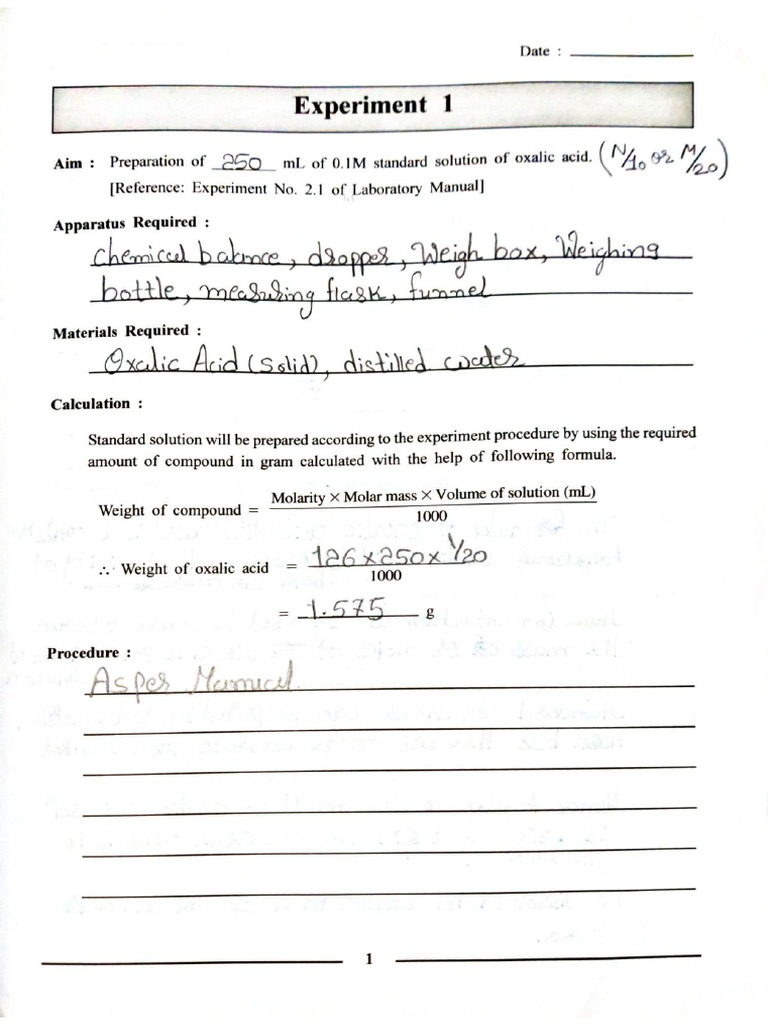 Date :
Experiment 1
Aim : Preparation of 250 mL of 0.1M standard solution of oxalic acid. (N/10 or M/20)
[Reference: Experiment No. 2.1 of Laboratory Manual]
Apparatus Required :
Chemical balance, dropper, Weigh box, Weighing
bottle, measuring flask, funnel
Materials Required :
Oxalic Acid (Solid), distilled water
Calculation :
Standard solution will be prepared according to the experiment procedure by using the required
amount of compound in gram calculated with the help of following formula.
Weight of compound = Molarity × Molar mass × Volume of solution (mL)
1000
∴ Weight of oxalic acid = 126 × 250 × 1/20
1000
= 1.575 g
Procedure :
As per Manual.
1